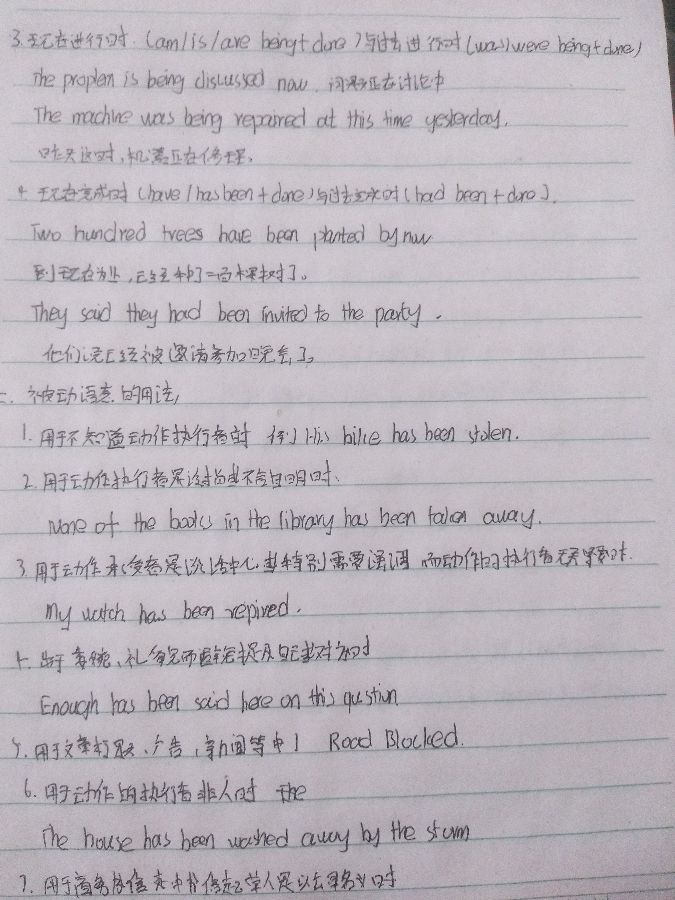 3. 现在进行时 (am/is/are being+done)与过去进行时(was)were being+done)
The proplen is being discussed now. 问题正在讨论中
The machine was being repaired at this time yesterday.
昨天这时,机器正在修理.
4. 现在完成时 (have/has been+done)与过去完成时(had been+done).
Two hundred trees have been planted by now
到现在为止,已经种了二百棵树了。
They said they had been invited to the party.
他们说已经被邀请参加晚会了。
二. 被动语态的用法,
1. 用于不知道动作执行者时 例) His bike has been stolen.
2. 用于动作执行者是谁尚不言自明时.
None of the books in the library has been taken away.
3. 用于动作承受者是谈话中心,特别需要强调 而动作的执行者无关紧要时.
My watch has been repired.
4. 出于 礼貌而避免提及自己或对方时
Enough has been said here on this question
5. 用于文章标题、广告,新闻等中 Road Blocked.
6. 用于动作的执行者非人时 The
The house has been washed away by the storm
7. 用于商务信